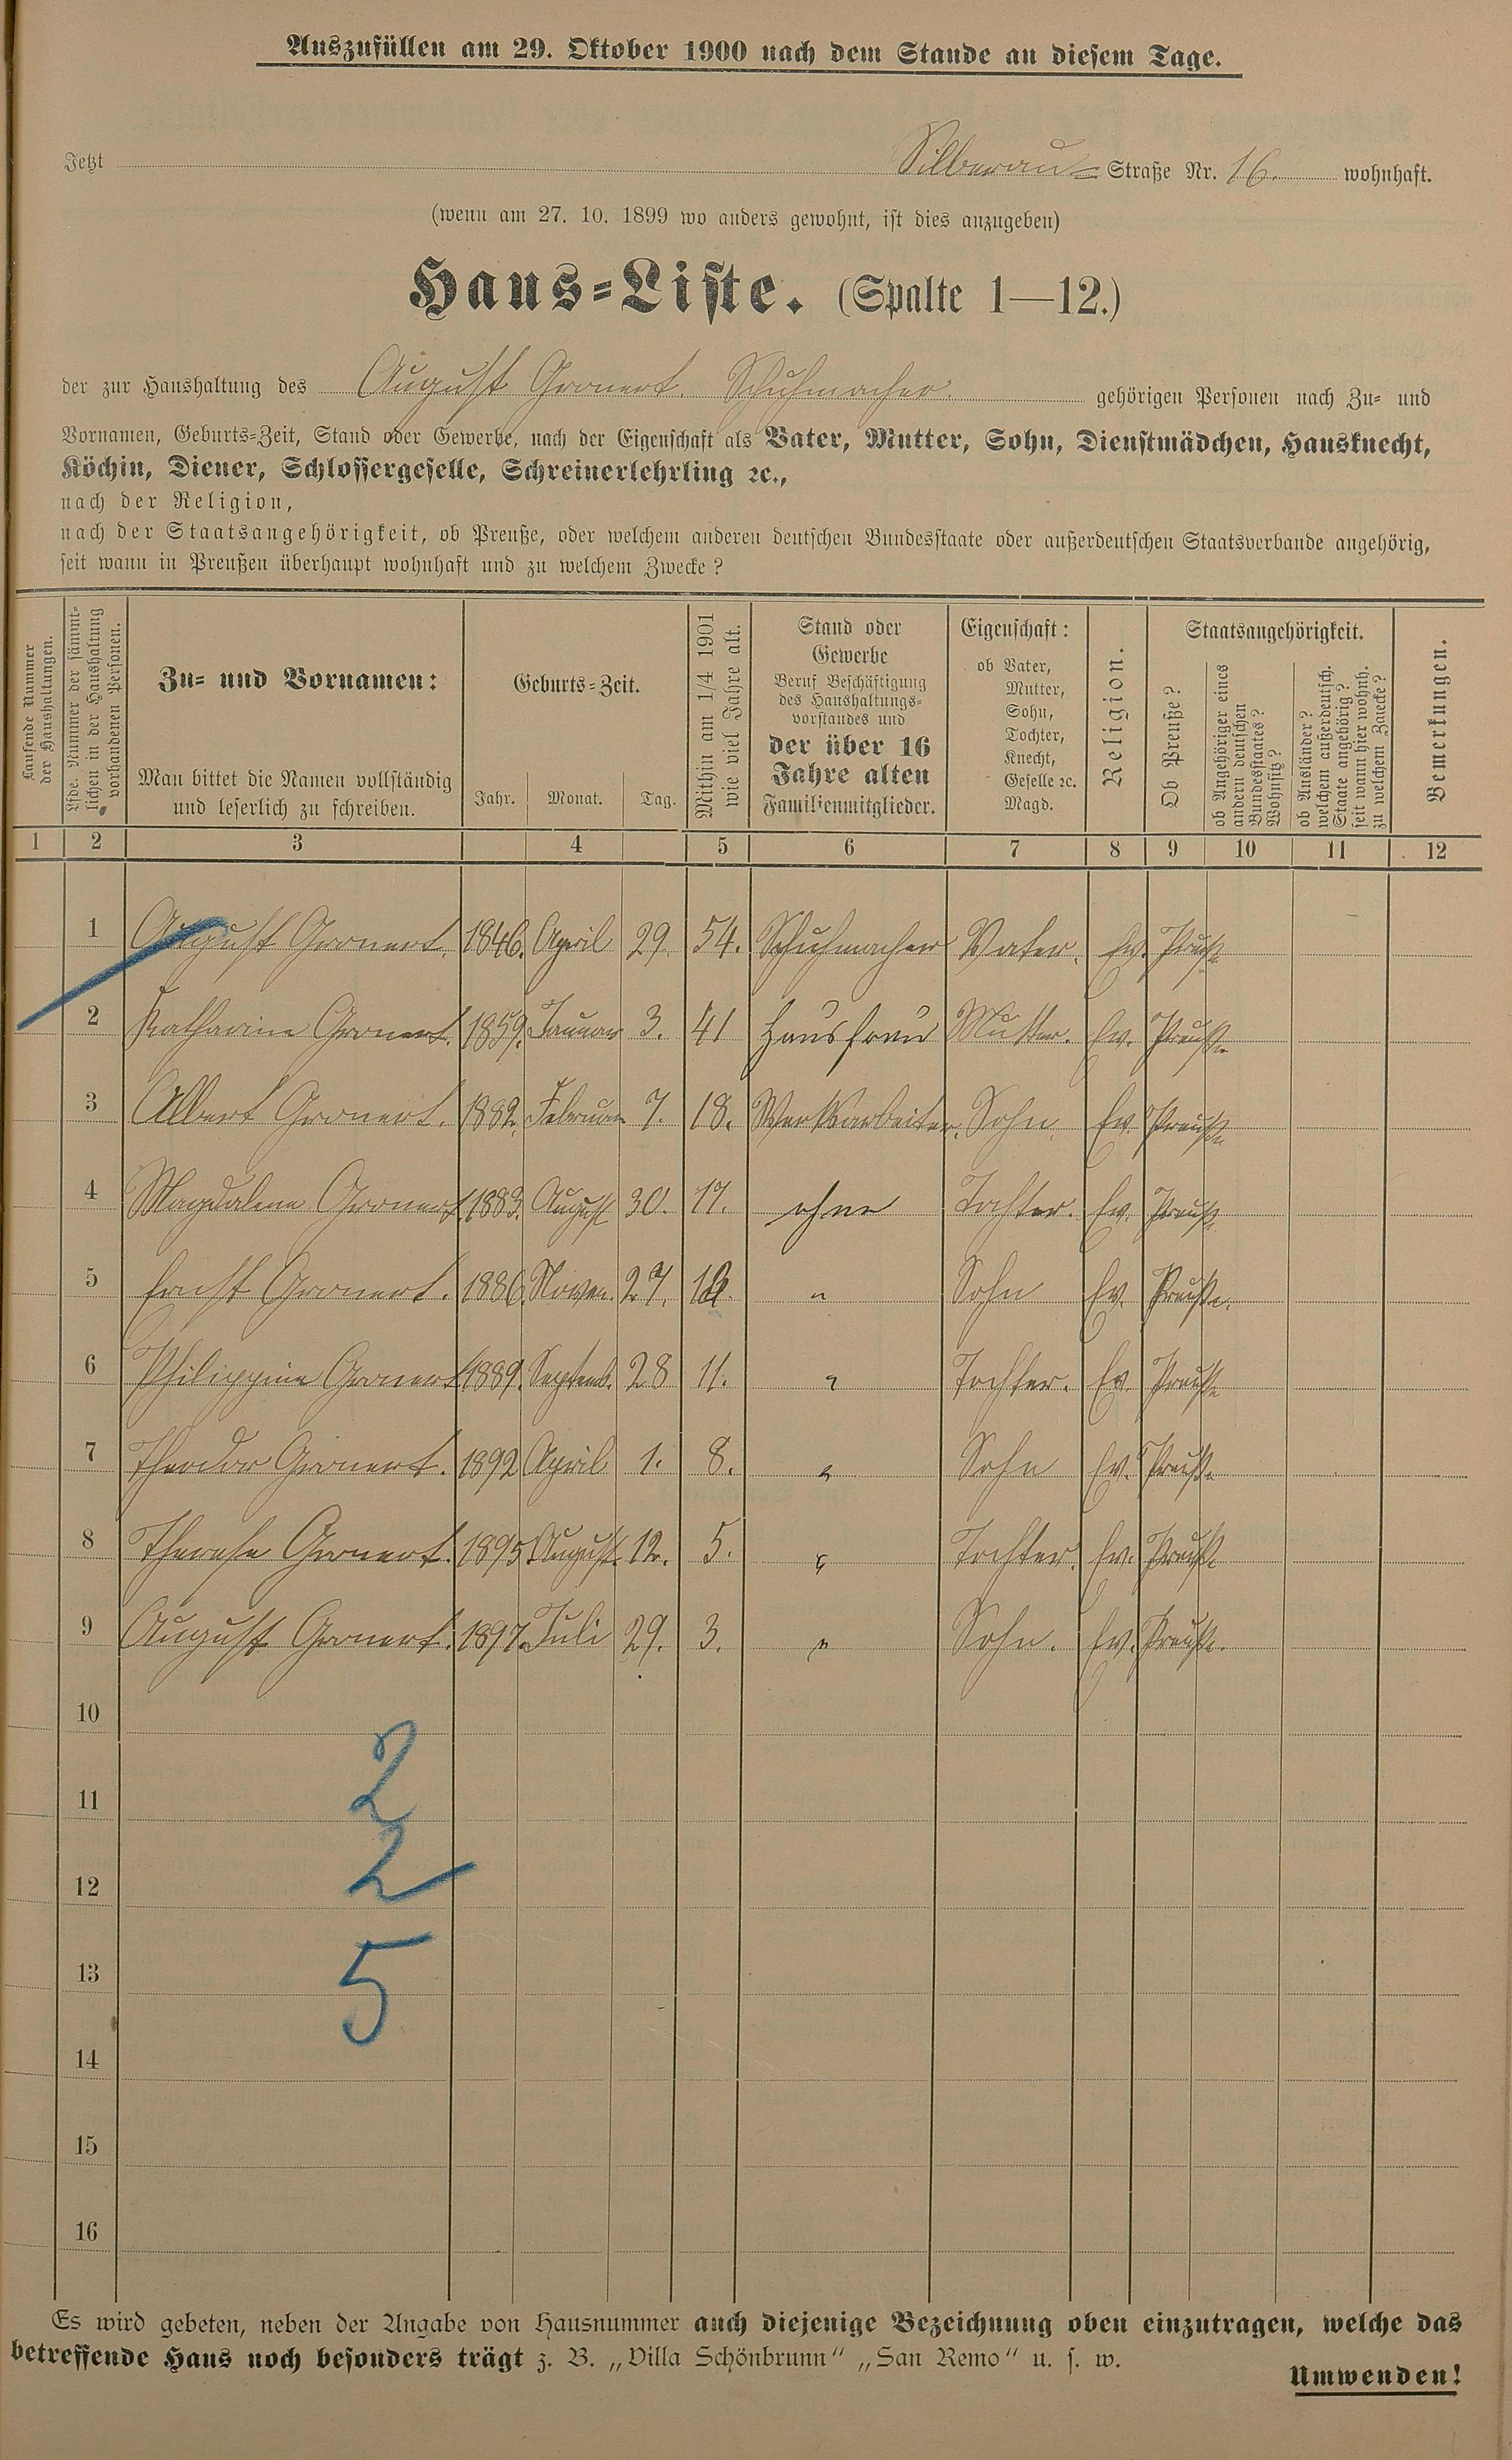 Auszufüllen am 29. Oktober 1900 nach dem Stande an diesem Tage.
Jetzt Silberau- Straße Nr. 16. wohnhaft.
(wenn am 27. 10. 1899 wo anders gewohnt, ist dies anzugeben)
Haus-Liste. (Spalte 1—12.)
der zur Haushaltung des August Gronert. Schuhmacher. gehörigen Personen nach Zu- und
Vornamen, Geburts-Zeit, Stand oder Gewerbe, nach der Eigenschaft als Vater, Mutter, Sohn, Dienstmädchen, Hausknecht,
Köchin, Diener, Schlossergeselle, Schreinerlehrling ꝛc.,
nach der Religion,
nach der Staatsangehörigkeit, ob Preuße, oder welchem anderen deutschen Bundesstaate oder außerdeutschen Staatsverbande angehörig,
seit wann in Preußen überhaupt wohnhaft und zu welchem Zwecke?
Laufende Nummer
der Haushaltungen.
Lfde. Nummer der sämmt-
lichen in der Haushaltung
vorhandenen Personen.
Zu- und Vornamen:
Man bittet die Namen vollständig
und leserlich zu schreiben.
Geburts-Zeit.
Jahr. Monat. Tag.
Mithin am 1/4 1901
wie viel Jahre alt.
Stand oder
Gewerbe
Beruf Beschäftigung
des Haushaltungs-
vorstandes und
der über 16
Jahre alten
Familienmitglieder.
Eigenschaft:
ob Vater,
Mutter,
Sohn,
Tochter,
Knecht,
Geselle ꝛc.
Magd.
Religion.
Staatsangehörigkeit.
Ob Preuße?
ob Angehöriger eines
andern deutschen
Bundesstaates?
Wohnsitz?
ob Ausländer?
welchem außerdeutsch.
Staate angehörig?
seit wann hier wohnh.
zu welchem Zwecke?
Bemerkungen.
1 2 3 4 5 6 7 8 9 10 11 12
1 August Gronert. 1846. April 29. 54. Schuhmacher Vater. Ev. Preuße
2 Katharine Gronert. 1859. Januar 3. 41 Hausfrau Mutter. Ev. Preuße
3 Albert Gronert. 1882. Februar 7. 18. Werksarbeiter. Sohn. Ev. Preuße
4 Magdalena Gronert. 1883. August 30. 17. ohne Tochter. Ev. Preuße
5 Ernst Gronert. 1886. Novem. 27. Sohn Ev. Preuße.
6 Philippine Gronert 1889. Septemb. 28 11. " Tochter. Ev. Preuße
7 Theodor Gronert. 1892 April 1. 8. " Sohn Ev. Preuße
8 Therese Gronert. 1895. August. 12. 5. " Tochter. Ev. Preuße
9 August Gronert. 1897. Juli 29. 3. " Sohn. Ev. Preuße.
10
2
11
2
12
5
13
14
15
16
Es wird gebeten, neben der Angabe von Hausnummer auch diejenige Bezeichnung oben einzutragen, welche das
betreffende Haus noch besonders trägt z. B. „Villa Schönbrunn" „San Remo" u. s. w.
Umwenden!